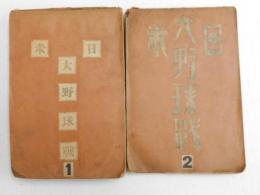 日米
大野球戦
1
日米
大野球戦
2